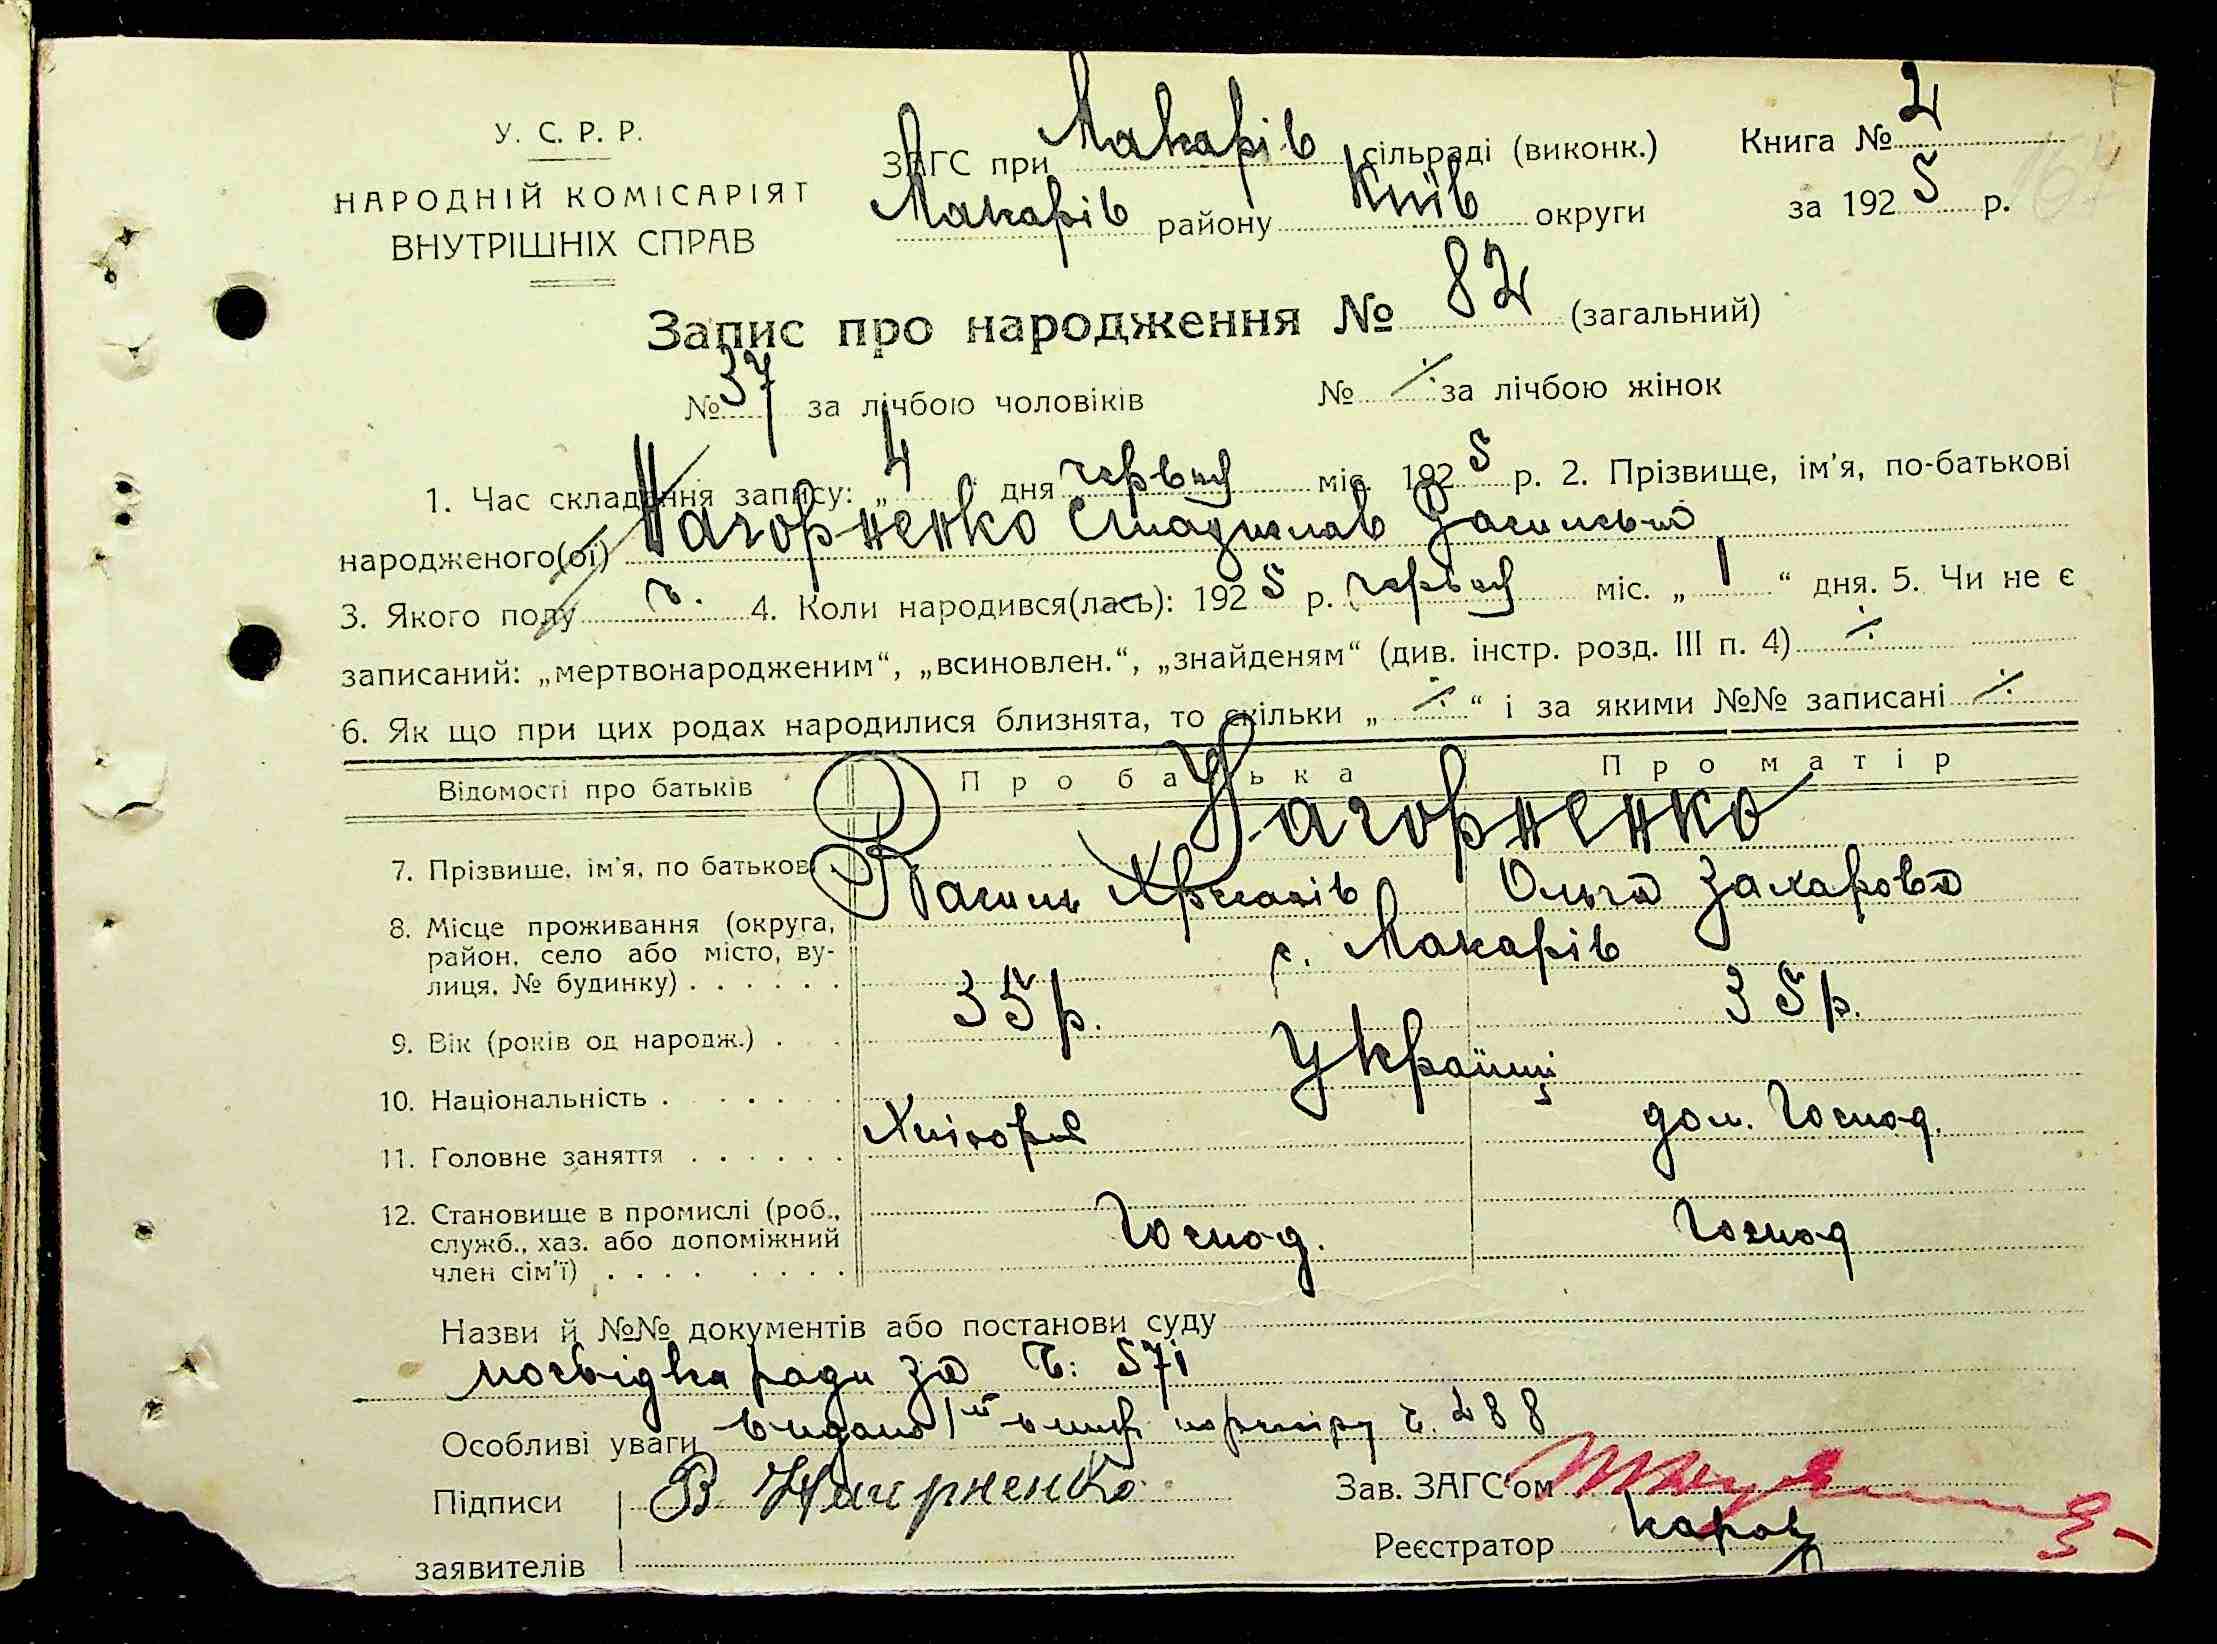 У. С. Р. Р.
НАРОДНІЙ КОМІСАРІЯТ
ВНУТРІШНІХ СПРАВ
ЗАГС при Макарів сільраді (виконк.) Книга № 2
Макарів району Київ округи за 1925 р.
Запис про народження № 82 (загальний)
№ 37 за лічбою чоловіків № ·/· за лічбою жінок
1. Час складання запису: „4 дня червня міс. 1925 р. 2. Прізвище, ім'я, по-батькові
народженого(ої) Нагорненко Василів
3. Якого полу ч. 4. Коли народився(лась): 1925 р. червня міс. „1“ дня. 5. Чи не є
записаний: „мертвонародженим“, „всиновлен.“, „знайденям“ (див. інстр. розд. III п. 4) ·/·
6. Як що при цих родах народилися близнята, то скільки „·/·“ і за якими №№ записані ·/·
Відомості про батьків Про батька Про матір
Нагорненко
7. Прізвище, ім'я, по батькові Василь Ольга Захарова
8. Місце проживання (округа, район, село або місто, ву-
лиця, № будинку) . . . . . . с. Макарів
9. Вік (років од народж.) . . . 35 р. 35 р.
10. Національність . . . . . . Українці
11. Головне заняття . . . . . . Хлібороб дом. Господ.
12. Становище в промислі (роб.,
служб., хаз. або допоміжний
член сім'ї) . . . . . . . . Господ. Господ
Назви й №№ документів або постанови суду
посвідка ради за ч: 571
Особливі уваги видано ч. 288
Підписи В. Нагорненко Зав. ЗАГС'ом
заявителів Реєстратор